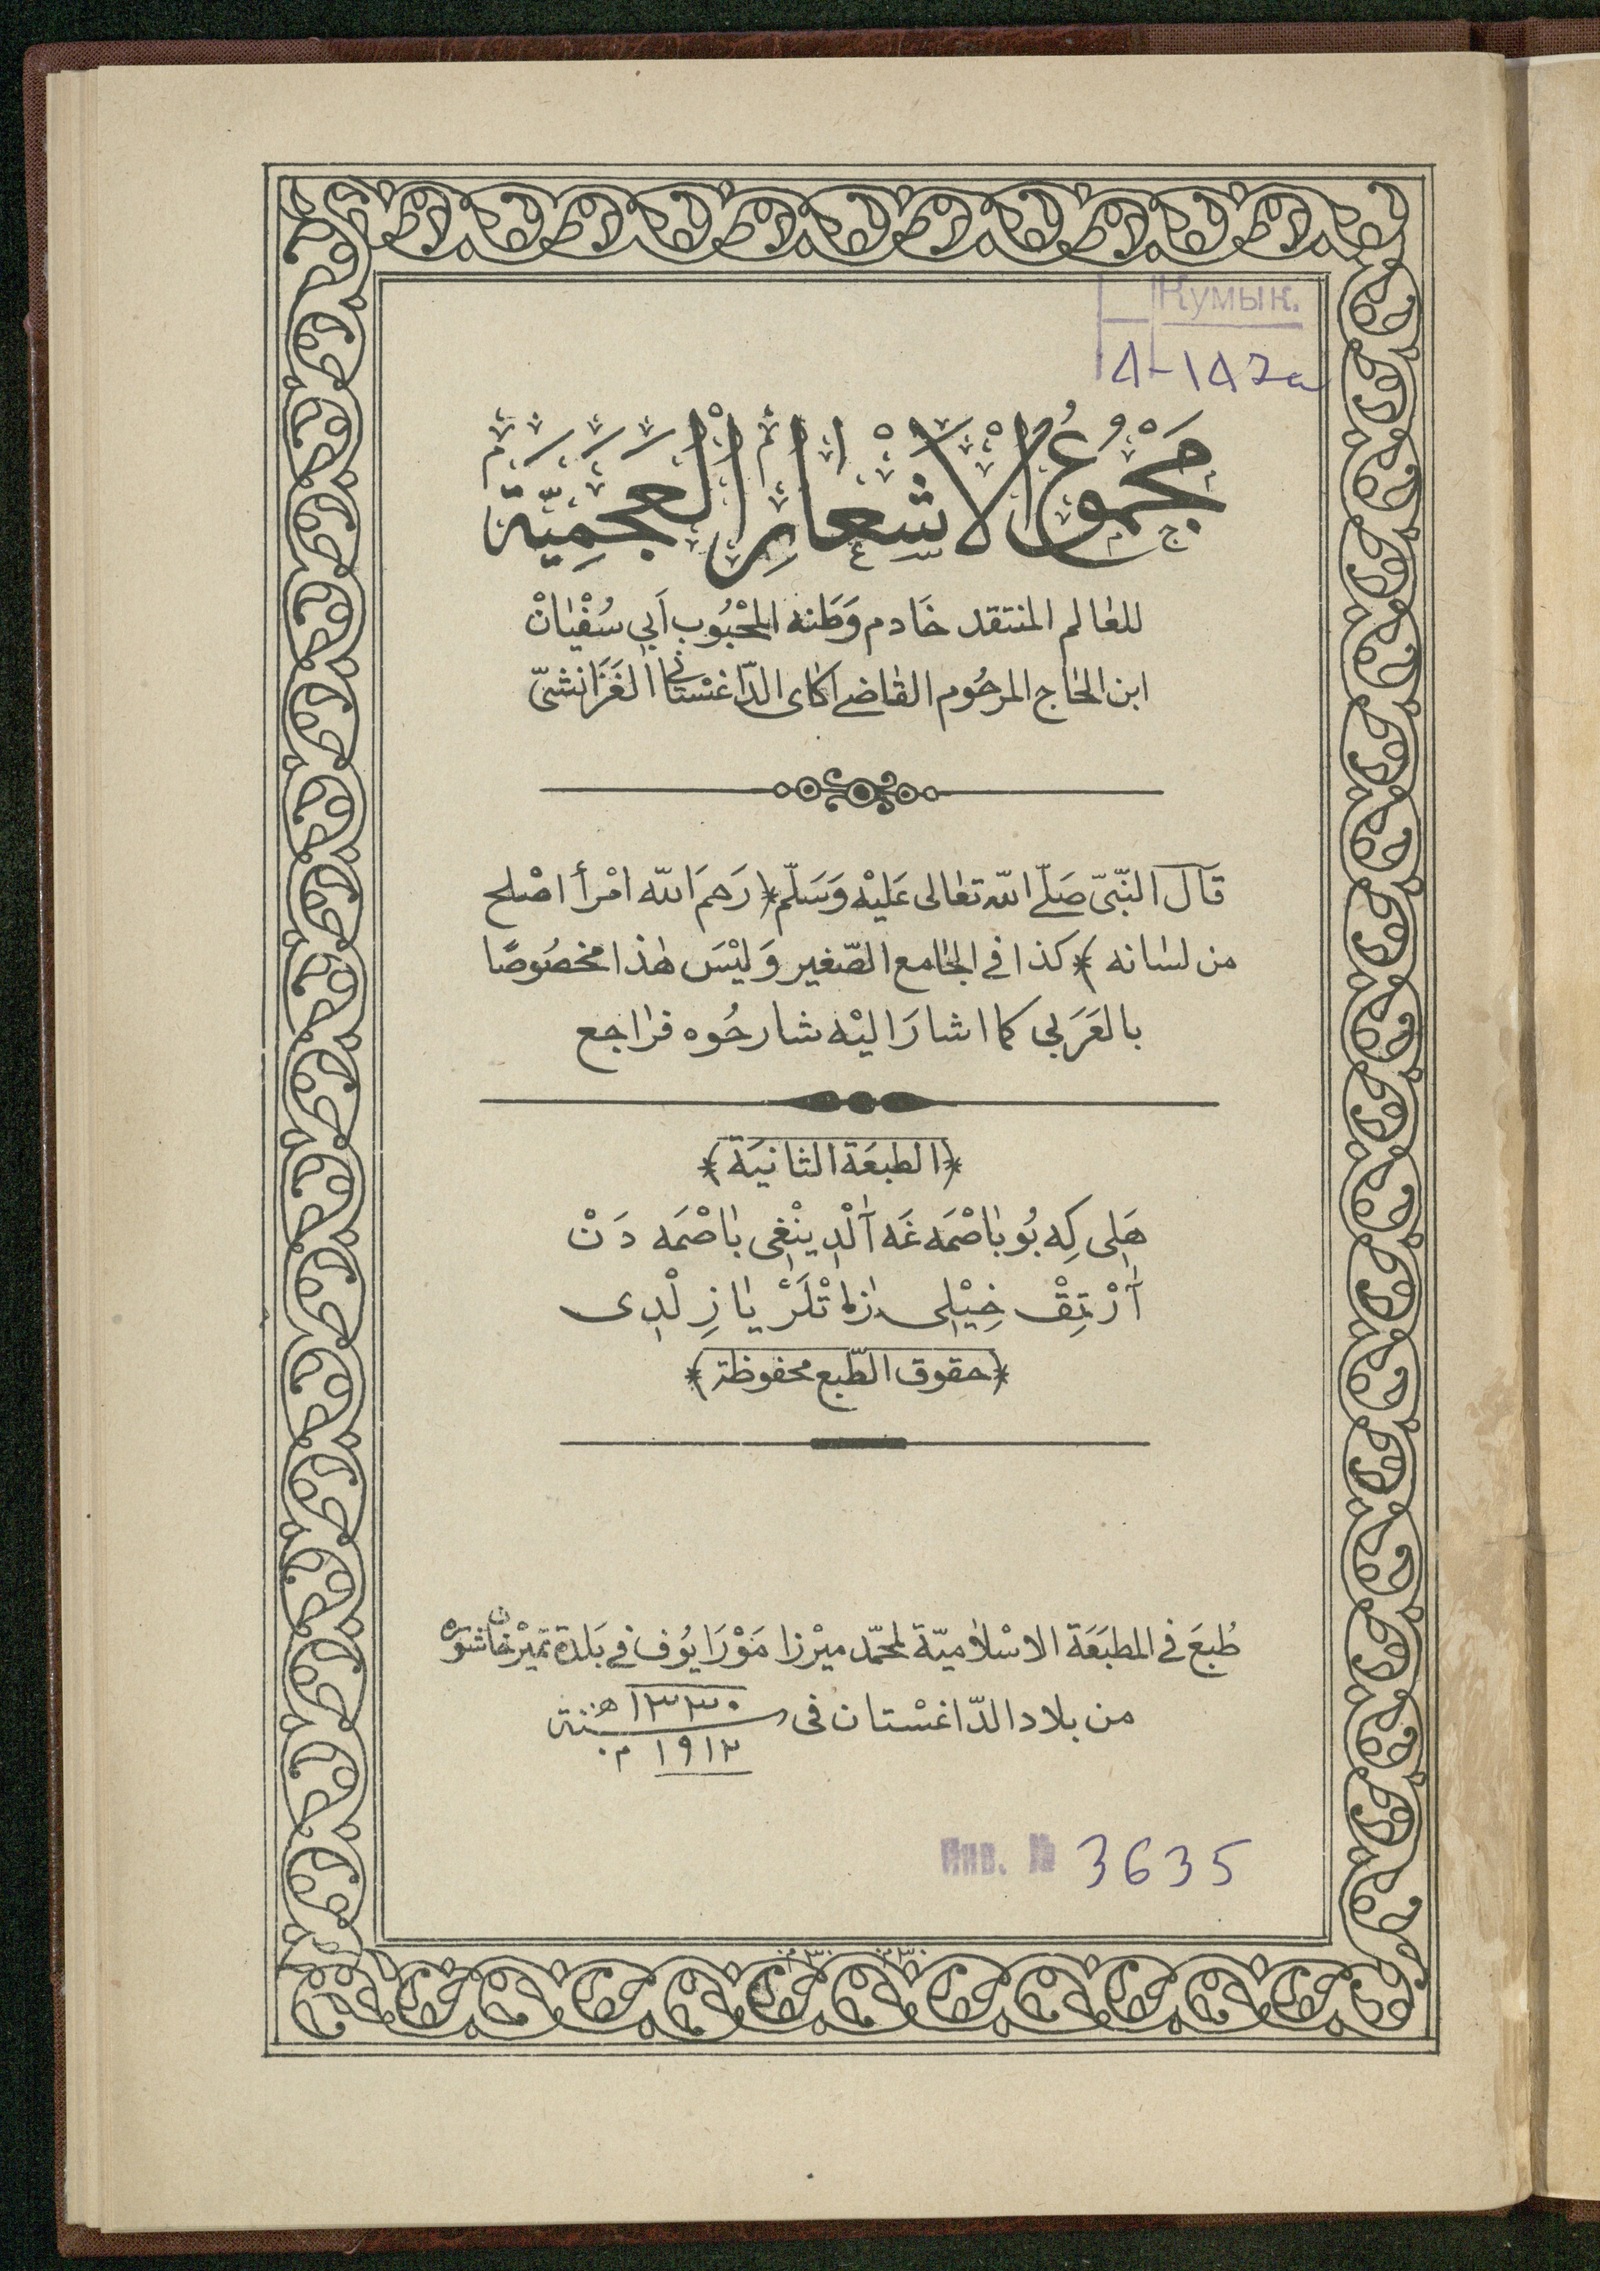 Кумык.
А-147а
مَجْمُوعُ الْاَشْعَارِ الْعَجَمِيَّة
للعالم المنتقد خَادم وَطَنه المحْبُوب اَبي سُفْيَانْ
ابن الحاج المرحُوم القاضے اكاى الدّاغسْتانيّ الغَزَانشىّ
قَالَ النّبىّ صَلّے الله تعالى عَليْه وَسَلّم ﴿ رَحمَ الله امْرأ اصْلح
من لسانه ﴾ كذا فے الجامع الصّغير وَليْسَ هٰذا مخصُوصًا
بالعَرَبي كما اشارَ اليْه شارحُوه فراجع
﴿ الطبعَة الثانيَة ﴾
هَلِى كِه بُو بٰاصْمَه غَه آلْدِينْغِى بٰاصْمَه دَنْ
آرْتِقْ خِيْلِى زاتْلَرْ يٰازِلْدِى
﴿ حقوق الطّبع محفوظة ﴾
طُبعَ فے المطبَعَة الاسْلاميّة لمحمّد ميرْزا مَوْرَايُوف فے بَلدة تميْرخانْ شوْرَه
من بلاد الدّاغسْتان فى سنة ١٣٣٠ ه
١٩١٢ م
Инв. № 3635